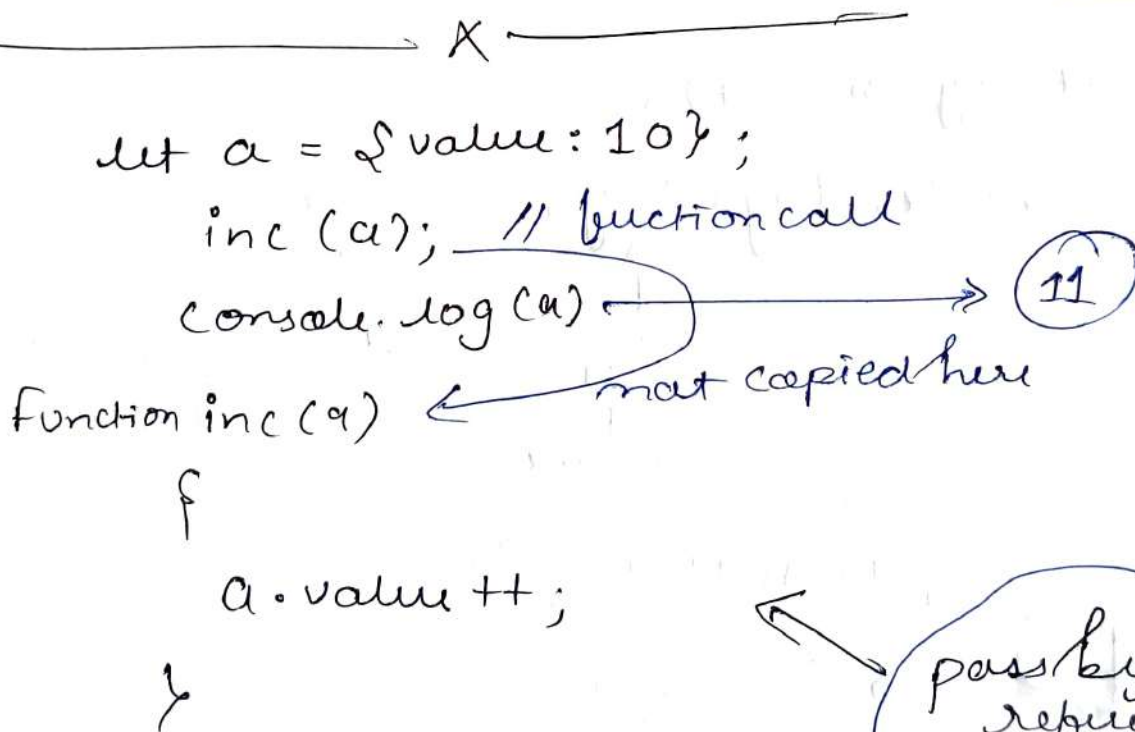 X
let a = {value:10};
inc (a); // fuction call
console.log (a) 11
not copied here
Function inc (a)
{
a.value ++;
}
pass by